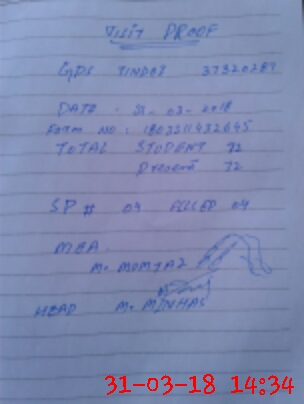 VISIT PROOF
GPS TINDER 37320289
DATE . 31-03-2018
FORM NO: 1803311432645
TOTAL STUDENT 72
Present 72
SP # 04 FILLED 04
MEA.
M. MUMTAZ
HEAD M. MINHAS
31-03-18 14:34